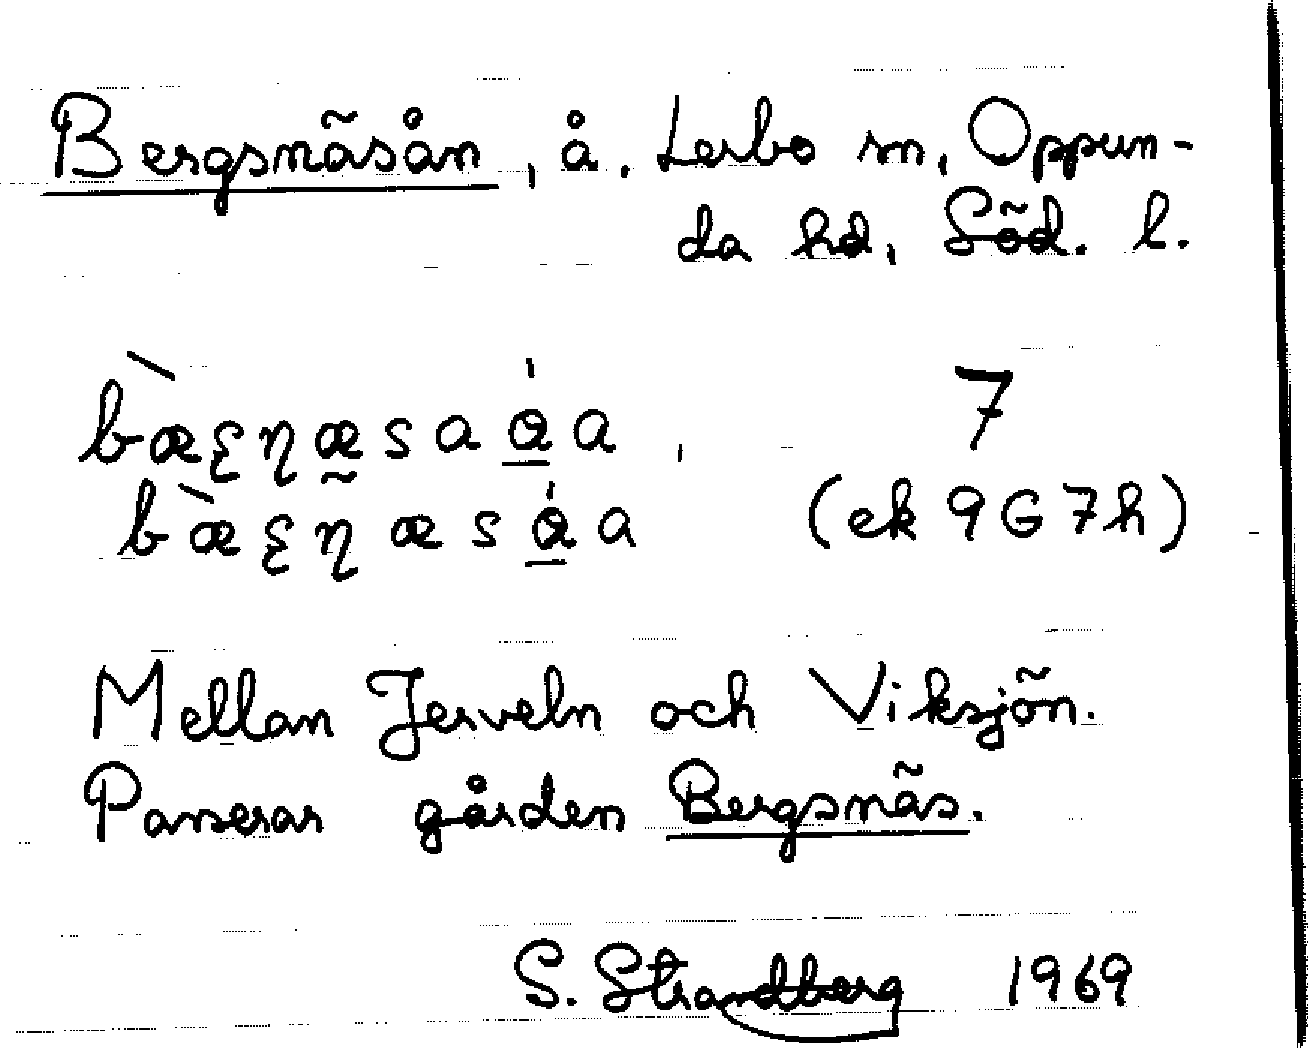 Bergsnäsån, å, Lerbo sn, Oppun-
da hd, Söd. l.
7
(ek 9G 7h)
Mellan Jerveln och Viksjön.
Passerar gården Bergsnäs.
S. Strandberg 1969